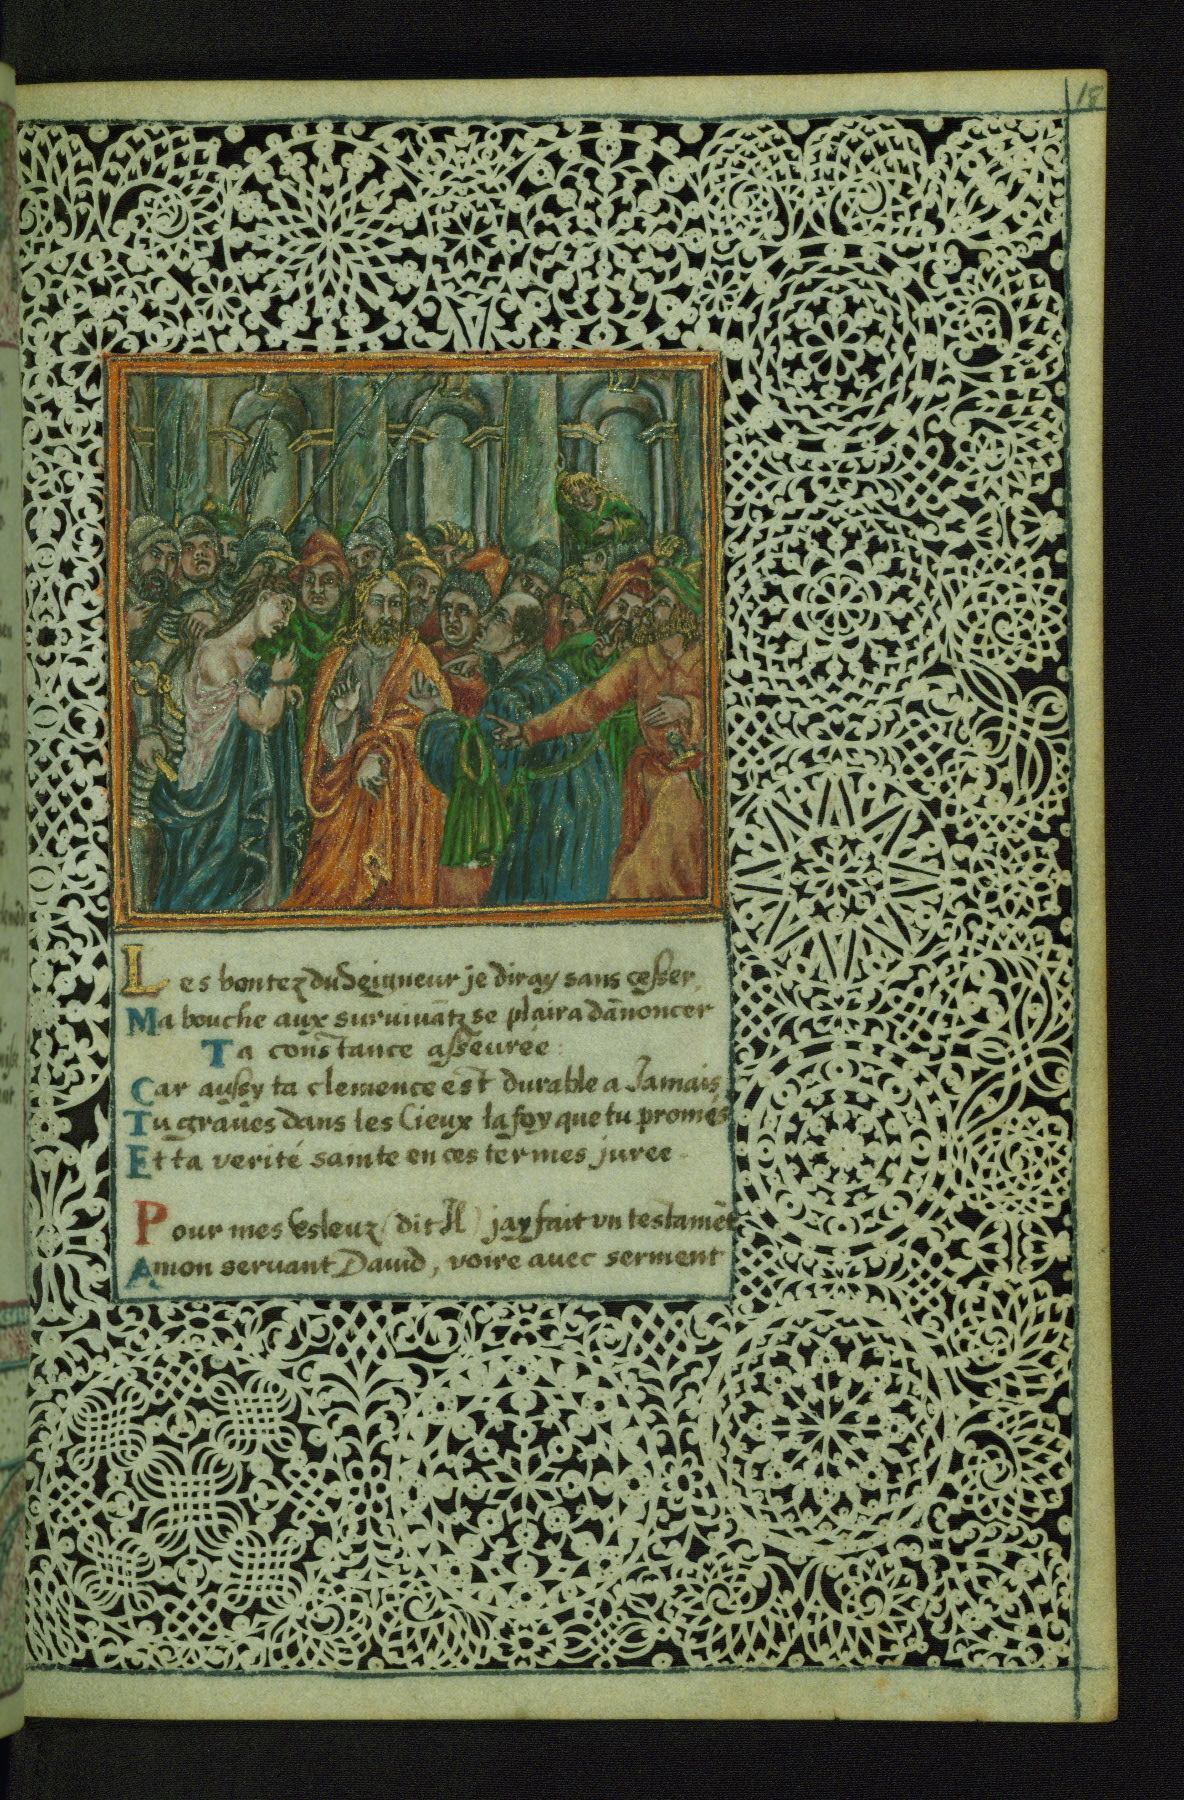 18
Les bontez du Seigneur je diray sans cesser,
Ma bouche aux survivãtz se plaira dãnoncer
Ta constance asseurée :
Car aussy ta clemence est durable a Jamais
Tu graues dans les Cieux ta foy que tu promés
Et ta verité sainte en ces termes juree .
Pour mes Esleuz (dit Il) jay fait vn testamēt
A mon seruant Dauid, voire auec serment